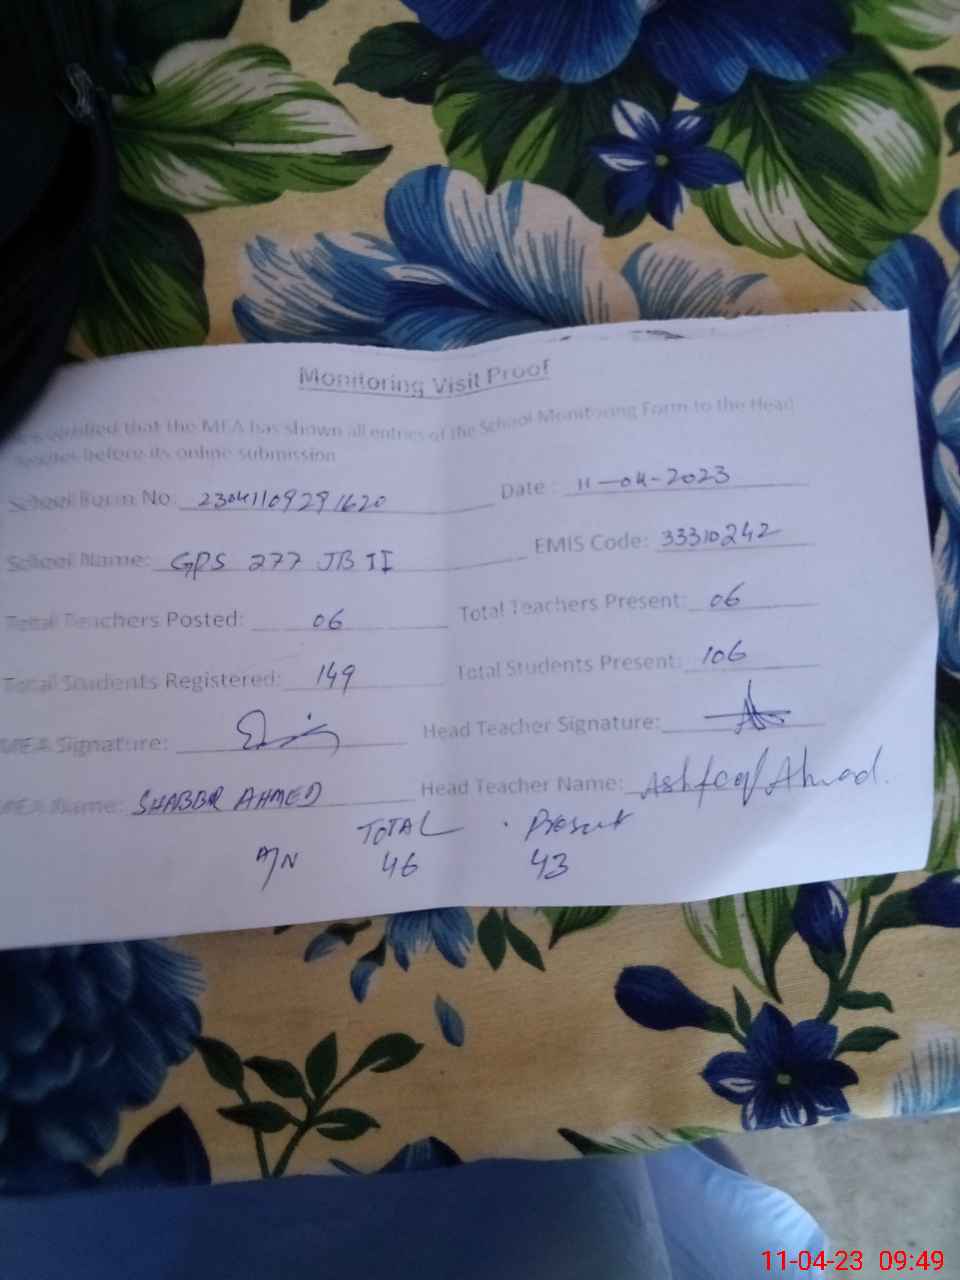 Monitoring Visit Proof
verified that the MEA has shown all entries of the School Monitoring Form to the Head
before its online submission
School Form No: 23041109291620 Date: 11-04-2023
School Name: GPS 277 JB II EMIS Code: 33310242
Total Teachers Posted: 06 Total Teachers Present: 06
Total Students Registered: 149 Total Students Present: 106
MEA Signature: Head Teacher Signature:
MEA Name: SHABBR AHMED Head Teacher Name: Ashfaq Ahmad.
TOTAL . Present
A/N 46 43
11-04-23 09:49